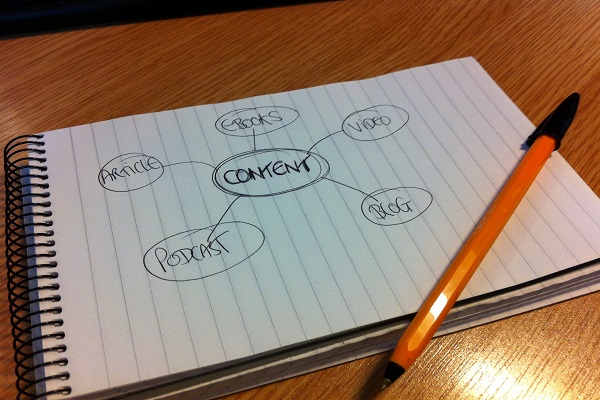 E-BOOKS
VIDEO
ARTICLE
CONTENT
BLOG
PODCAST